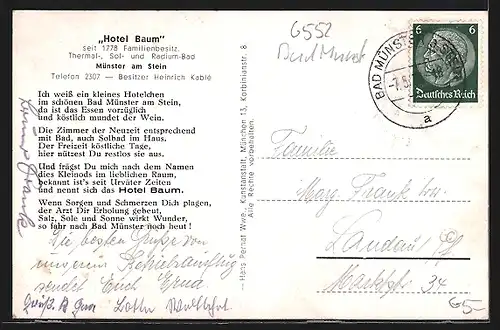 „Hotel Baum"
seit 1778 Familienbesitz.
Thermal-, Sol- und Radium-Bad
Münster am Stein
Telefon 2307 — Besitzer Heinrich Kable
Ich weiß ein kleines Hotelchen
im schönen Bad Münster am Stein,
da ist das Essen vorzüglich
und köstlich mundet der Wein.
Die Zimmer der Neuzeit entsprechend
mit Bad, auch Solbad im Haus.
Der Freizeit köstliche Tage,
hier nützest Du restlos sie aus.
Und frägst Du mich nach dem Namen
dies Kleinods im lieblichen Raum,
bekannt ist's seit Urväter Zeiten
und nennt sich das Hotel Baum.
Wenn Sorgen und Schmerzen Dich plagen,
der Arzt Dir Erholung gebeut,
Salz, Sole und Sonne wirkt Wunder,
so fahr nach Bad Münster noch heut!
Die besten Grüße von
unserem Betriebsausflug
sendet Euch Erna
Lotte
— Hans Pernat Wwe., Kunstanstalt, München 13, Korbiniusstr. 8
Alle Rechte vorbehalten.
6552
Bad Münster
BAD MÜNSTER
a
6 6
Deutsches Reich
Familie
Marg. Frank
Landau Pf
Marktstr. 34
65